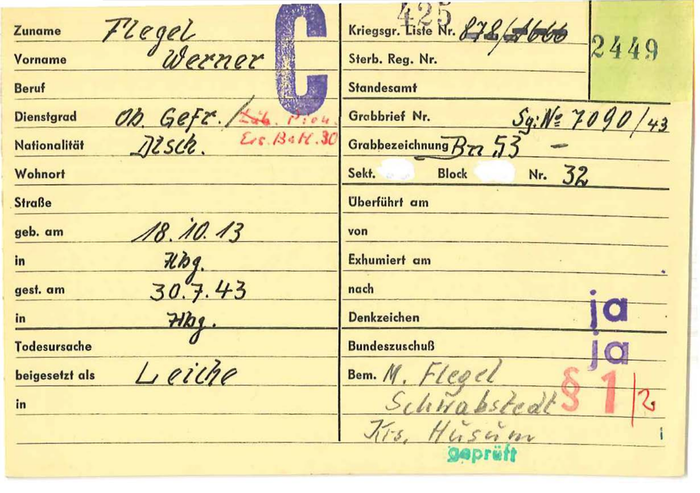 425
Zuname Flegel
C
Kriegsgr. Liste Nr. 878/1666
2449
Vorname Werner
Sterb. Reg. Nr.
Beruf
Standesamt
Dienstgrad Ob. Gefr. / Pion.
Ers. Batl. 30
Grabbrief Nr. Sg: No 7090/43
Nationalität Dtsch.
Grabbezeichnung Bn 53 –
Wohnort
Sekt. Block Nr. 32
Straße
Überführt am
geb. am 18.10.13
von
in Hbg.
Exhumiert am
gest. am 30.7.43
nach
in Hbg.
Denkzeichen ja
Todesursache
Bundeszuschuß ja
beigesetzt als Leiche
Bem. M. Flegel
Schwabstedt
§ 1/2
in
Krs. Husum
geprüft